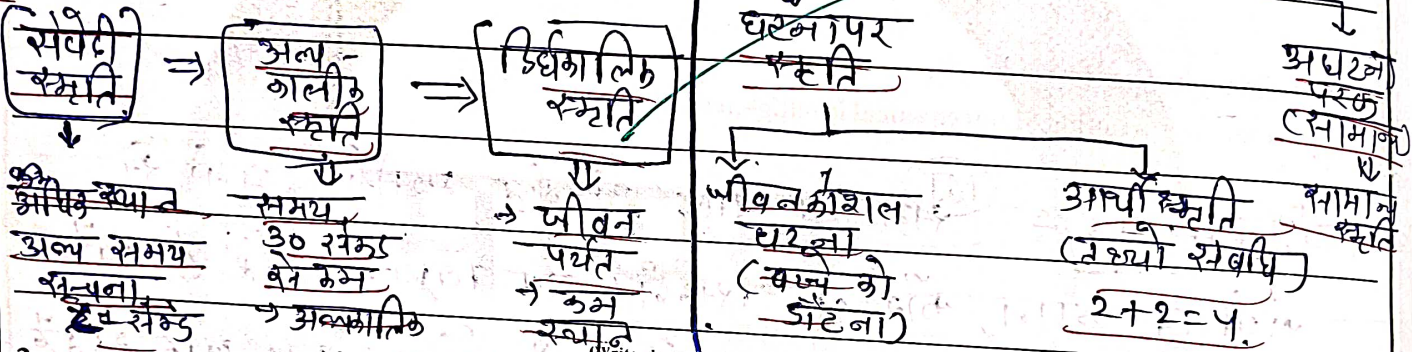 संवेदी
स्मृति
⇒
अल्प-
कालीक
स्मृति
⇒
दिर्घकालिक
स्मृति
कम
स्थान
अल्प समय
सूचना
सेकेंड
समय,
30 सेकंड
से कम
→ अल्पकालिक
→ जीवन
पर्यंत
→ कम
स्थान
घटनापर
स्मृति
जीवन कौशल
घटना
(बच्चे को
डांटना)
आर्थी स्मृति
(तथ्यो संबंधि)
2+2=4.
अघटना
परक
(सामान्य)
सामान्य
स्मृति